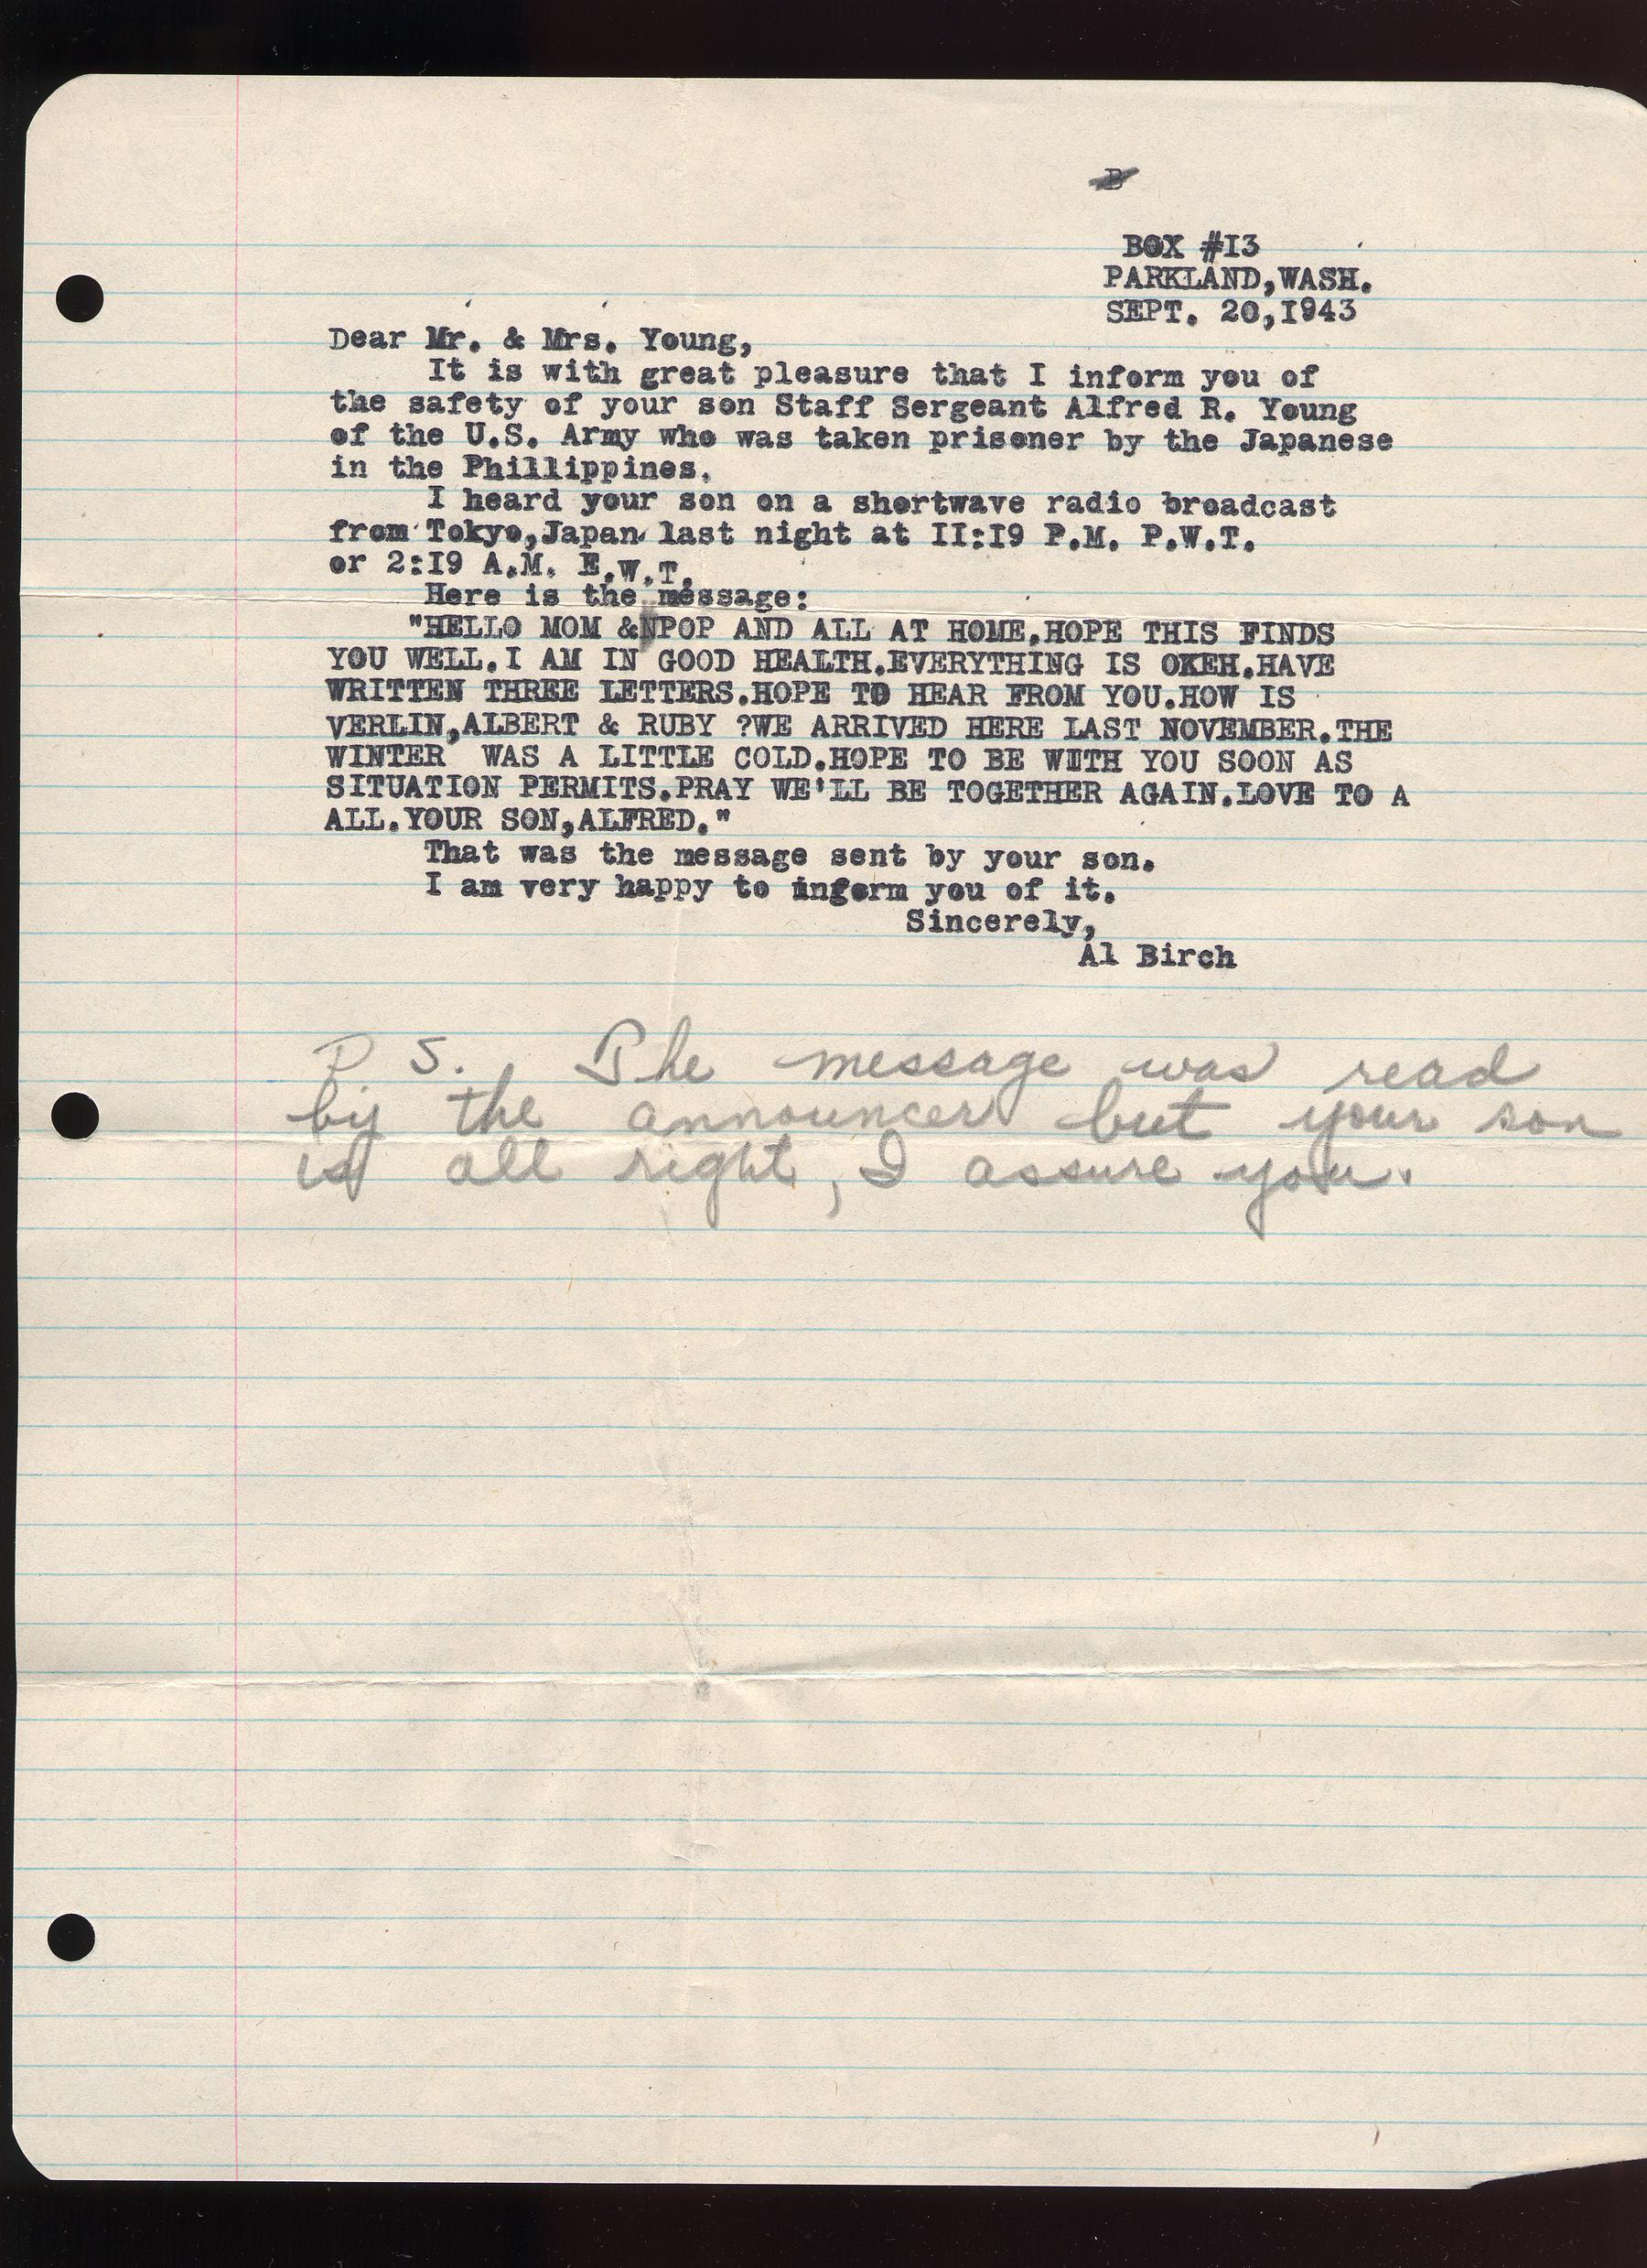 BOX #I3
PARKLAND,WASH.
SEPT. 20,I943
Dear Mr. & Mrs. Young,
It is with great pleasure that I inform you of
the safety of your son Staff Sergeant Alfred R. Young
of the U.S. Army who was taken prisoner by the Japanese
in the Phillippines.
I heard your son on a shortwave radio broadcast
from Tokyo,Japan last night at II:I9 P.M. P.W.T.
or 2:I9 A.M. E.W.T.
Here is the message:
"HELLO MOM &NPOP AND ALL AT HOME.HOPE THIS FINDS
YOU WELL.I AM IN GOOD HEALTH.EVERYTHING IS OKEH.HAVE
WRITTEN THREE LETTERS.HOPE TO HEAR FROM YOU.HOW IS
VERLIN,ALBERT & RUBY ?WE ARRIVED HERE LAST NOVEMBER.THE
WINTER WAS A LITTLE COLD.HOPE TO BE WITH YOU SOON AS
SITUATION PERMITS.PRAY WE'LL BE TOGETHER AGAIN.LOVE TO A
ALL.YOUR SON,ALFRED."
That was the message sent by your son.
I am very happy to inform you of it.
Sincerely,
Al Birch
P S. The message was read
by the announcer but your son
is all right, I assure you.